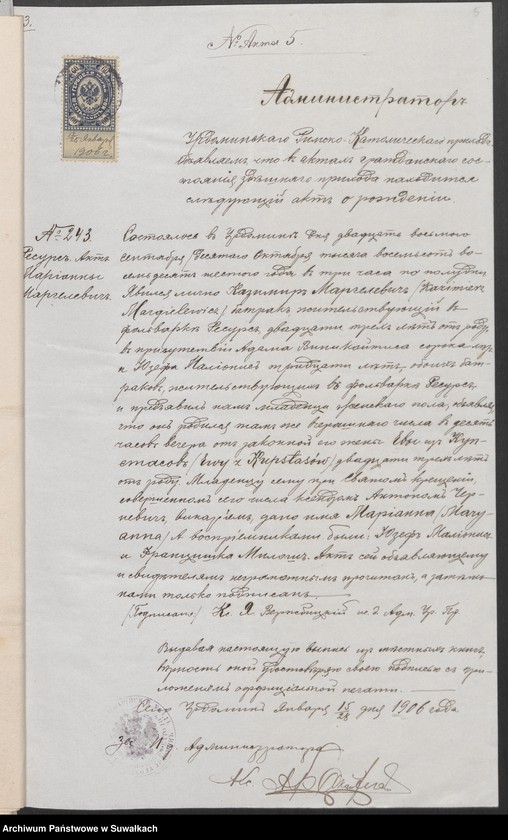 3.
5
№ Акта 5.
Администраторъ
Урдоминскаго Римско-Католическаго прихода
объявляетъ что въ актахъ гражданскаго сос-
тоянія здѣшняго прихода находится
слѣдующій актъ о рожденіи.
15 Января
1906 г.
№ 243.
Ресурсъ. Актъ
Маріанны
Маргелевичъ.
Состоялося въ Урдоминѣ дня двадцать восьмого
Сентября /десятаго Октября тысяча восемьсотъ во-
семьдесятъ шестого года въ три часа по полудни
Явился лично Казимиръ Маргелевичъ /Kazimierz
Margielewicz/ батракъ жительствующій въ
фольваркѣ Ресурсъ, двадцати трехъ лѣтъ отъ роду
въ присутствіи Адама сорока лѣтъ
и Юзефа тридцати лѣтъ, обоихъ бат-
раковъ, жительствующихъ въ фольваркѣ Ресурсъ
и предъявилъ намъ младенца женскаго пола, объявляя
что онъ родился тамъ же вчерашняго числа въ десять
часовъ вечера отъ законной его жены Евы изъ Куп-
стасовъ /Ewy z Kupstasów/ двадцати трехъ лѣтъ
отъ роду. Младенцу сему при Святомъ крещеніи
совершенномъ сего числа Ксендзомъ Антономъ Чер-
невичъ, викаріемъ, дано имя Маріанна /Mary-
anna/ А воспріемниками были: Юзефъ
и Францишка Милошъ. Актъ сей объявляющему
и свидѣтелямъ неграмотнымъ прочитанъ, а затѣмъ
нами только подписанъ.
/Подписалъ/ Кс. Я.
Выдавая настоящую выпись изъ мѣстныхъ книгъ,
вѣрность оной удостовѣряю своею подписью съ при-
ложеніемъ оффиціальной печати.
Село Урдоминъ Января 15/28 дня 1906 года
За И. д. Администратора
Кс.
Archiwum Państwowe w Suwałkach